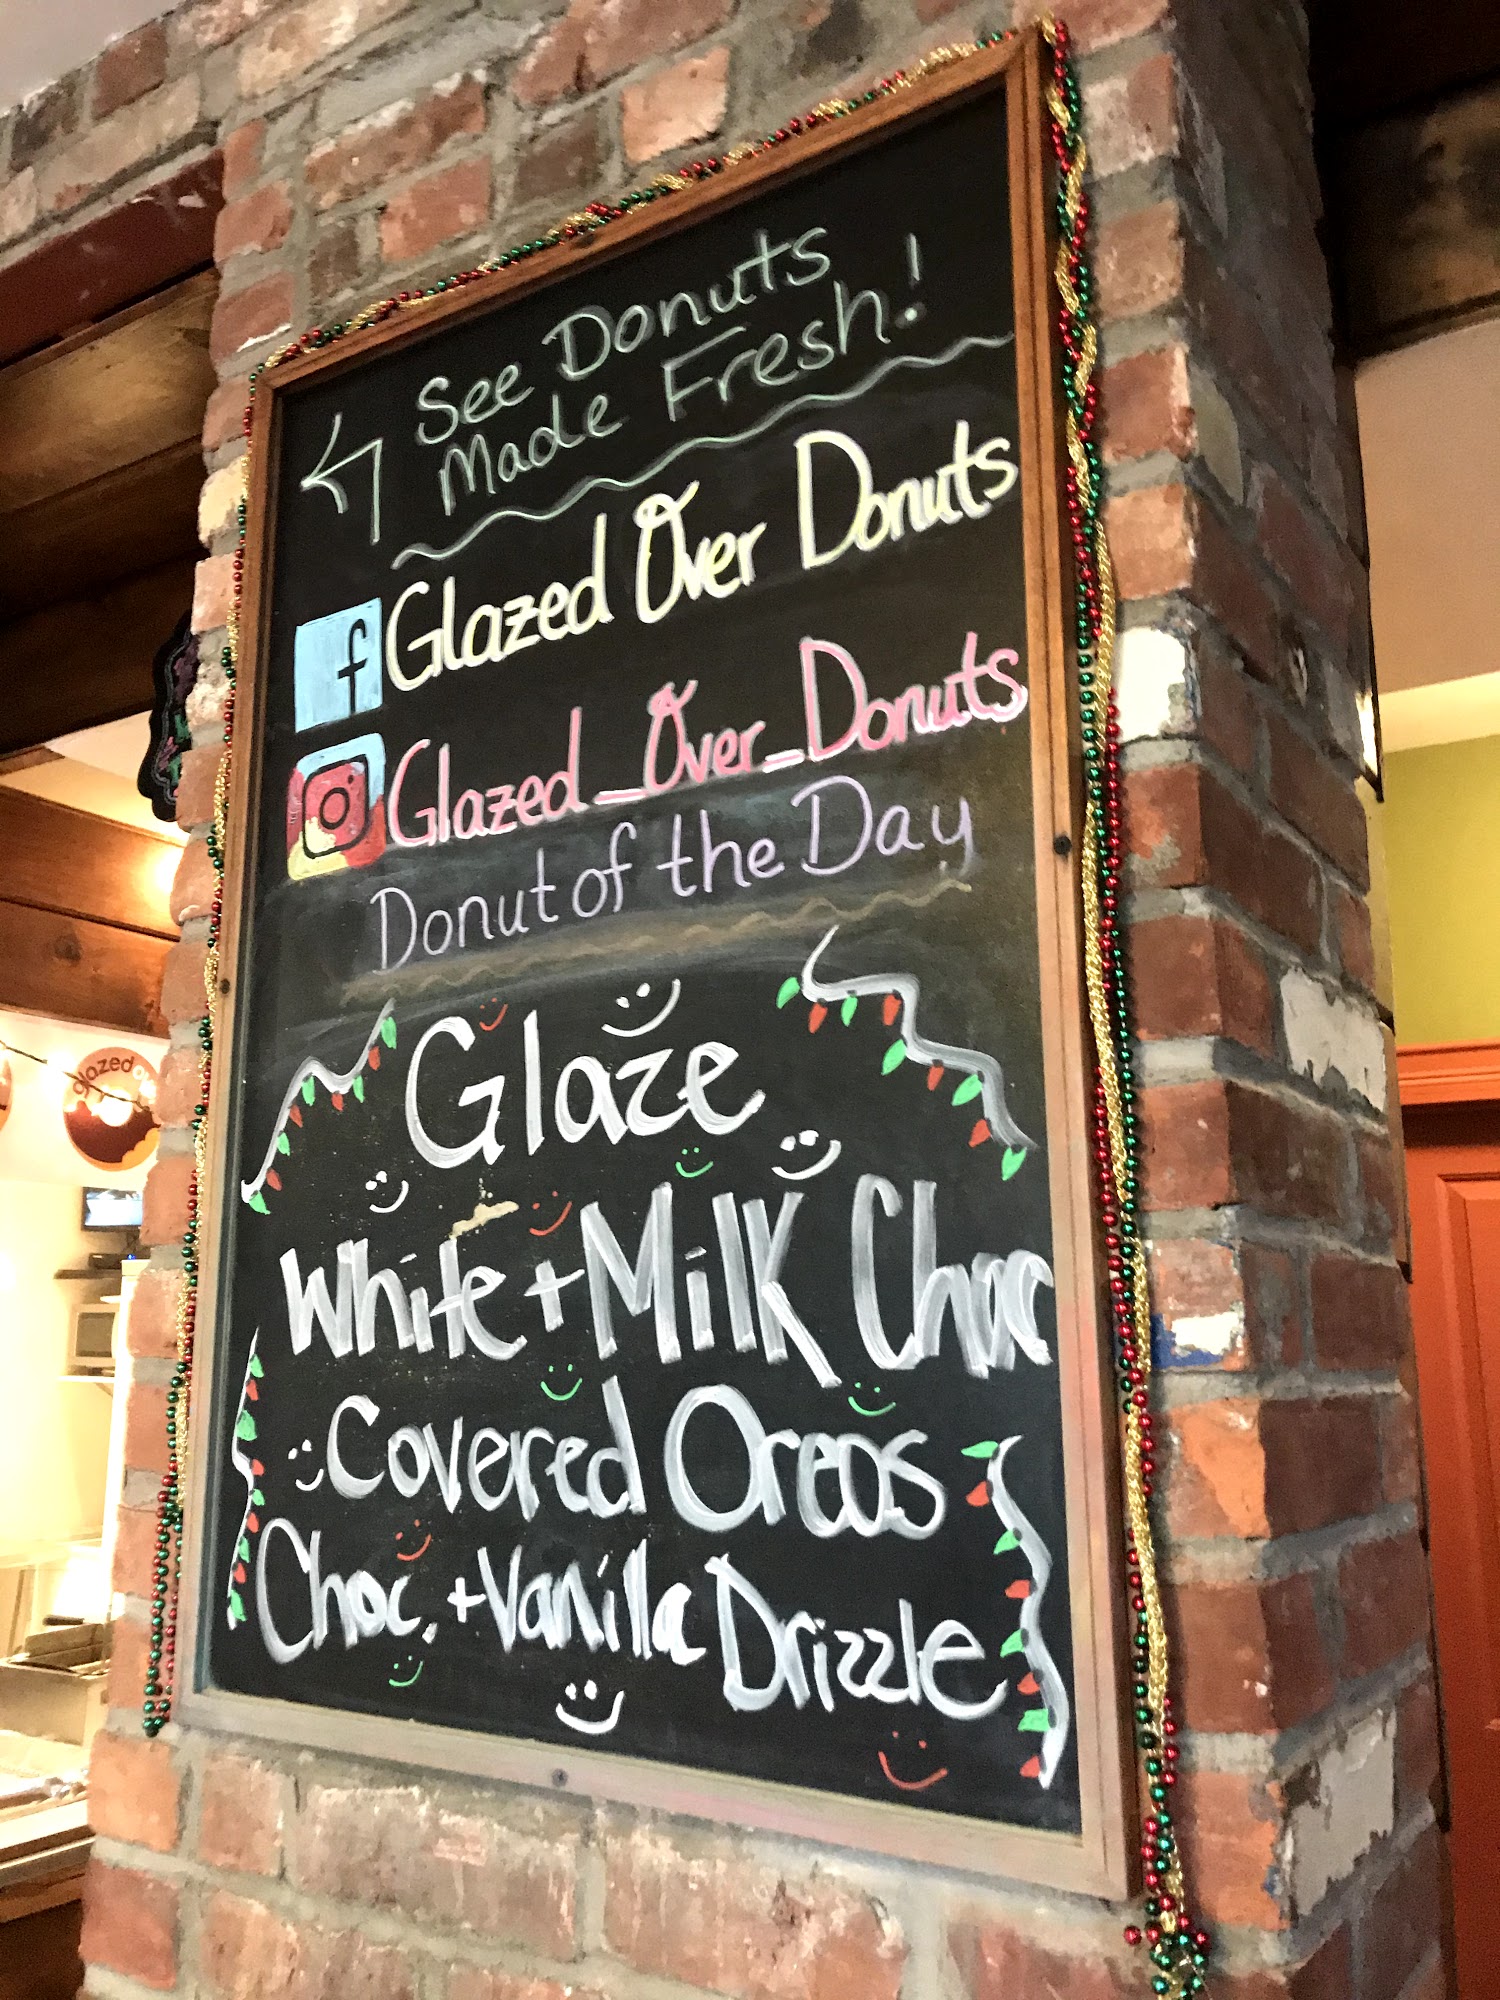 See Donuts
Made Fresh!
f Glazed Over Donuts
Glazed_Over_Donuts
Donut of the Day
Glaze
White + Milk Choc
Covered Oreos
Choc. + Vanilla Drizzle
glazed